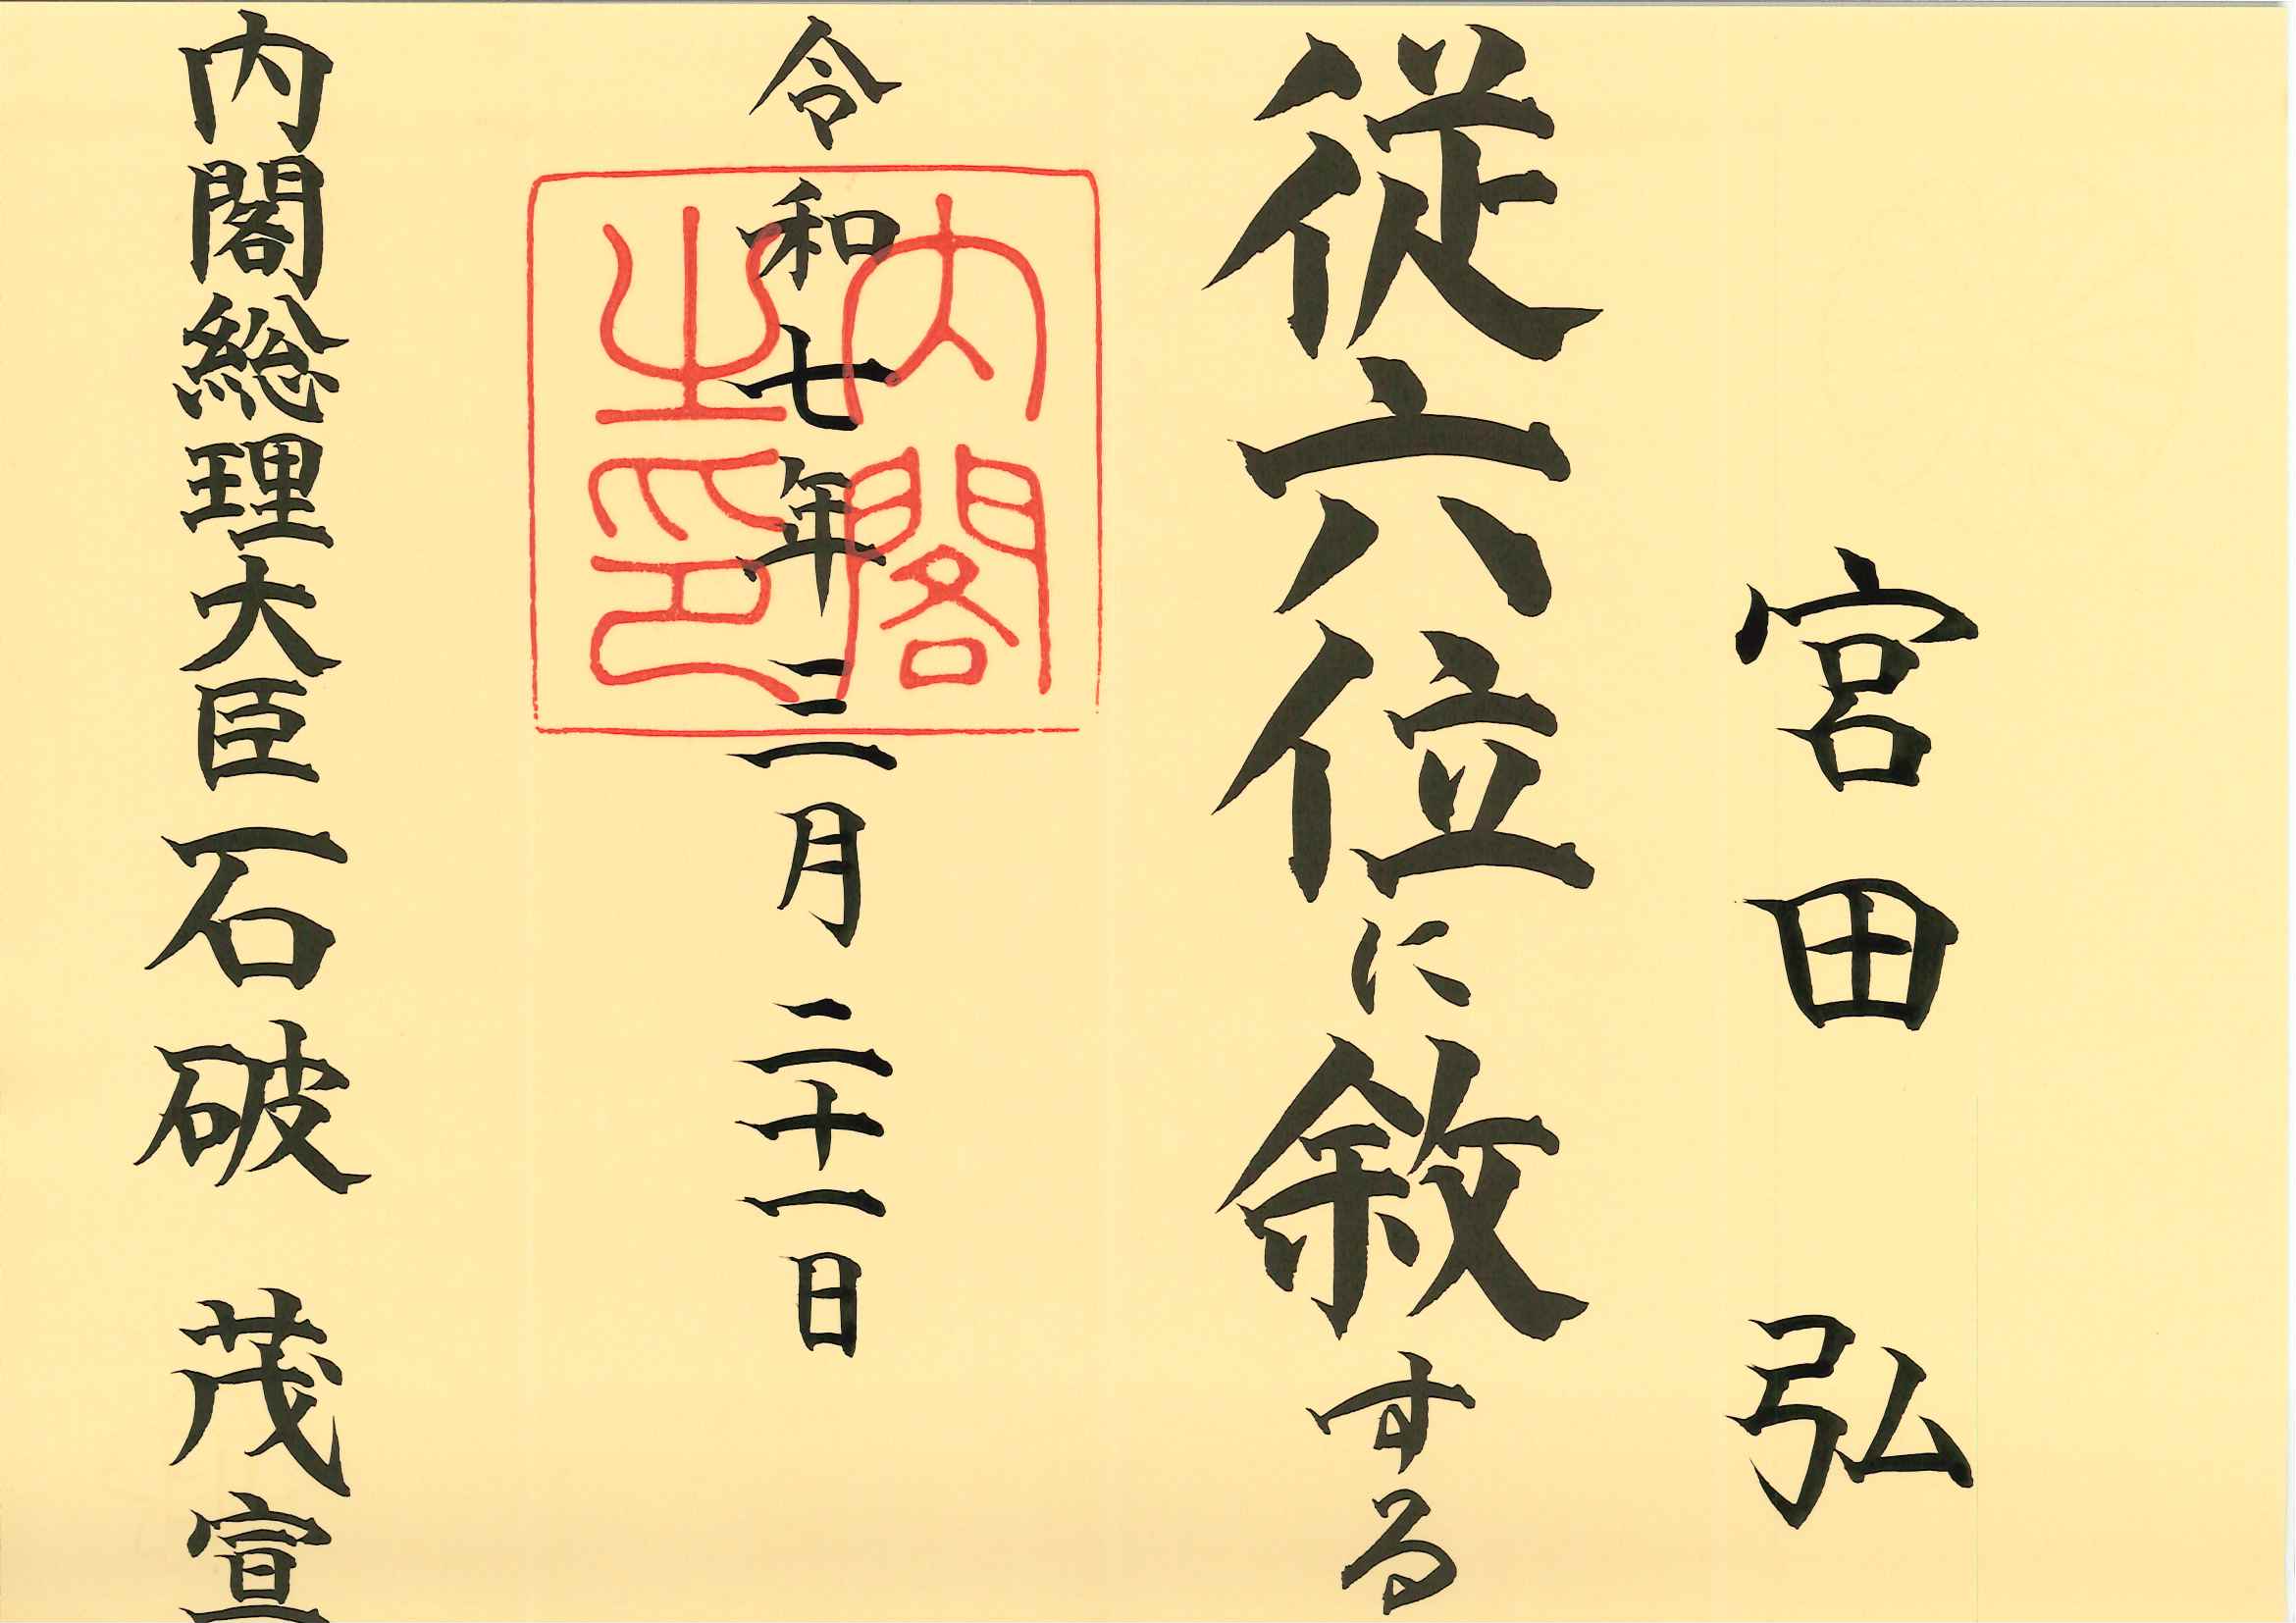 宮田弘
従六位に叙する
令和七年三月二十一日
内閣之印
内閣総理大臣石破茂宣